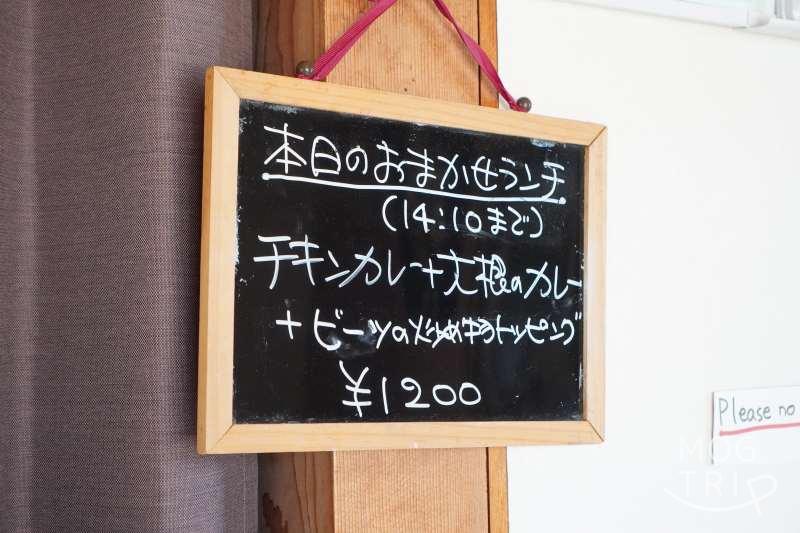 本日のおまかせランチ
(14:10まで)
チキンカレー+大根のカレー
+ビーツの炒め キのトッピング
¥1200
Please no
MOG
TRIP